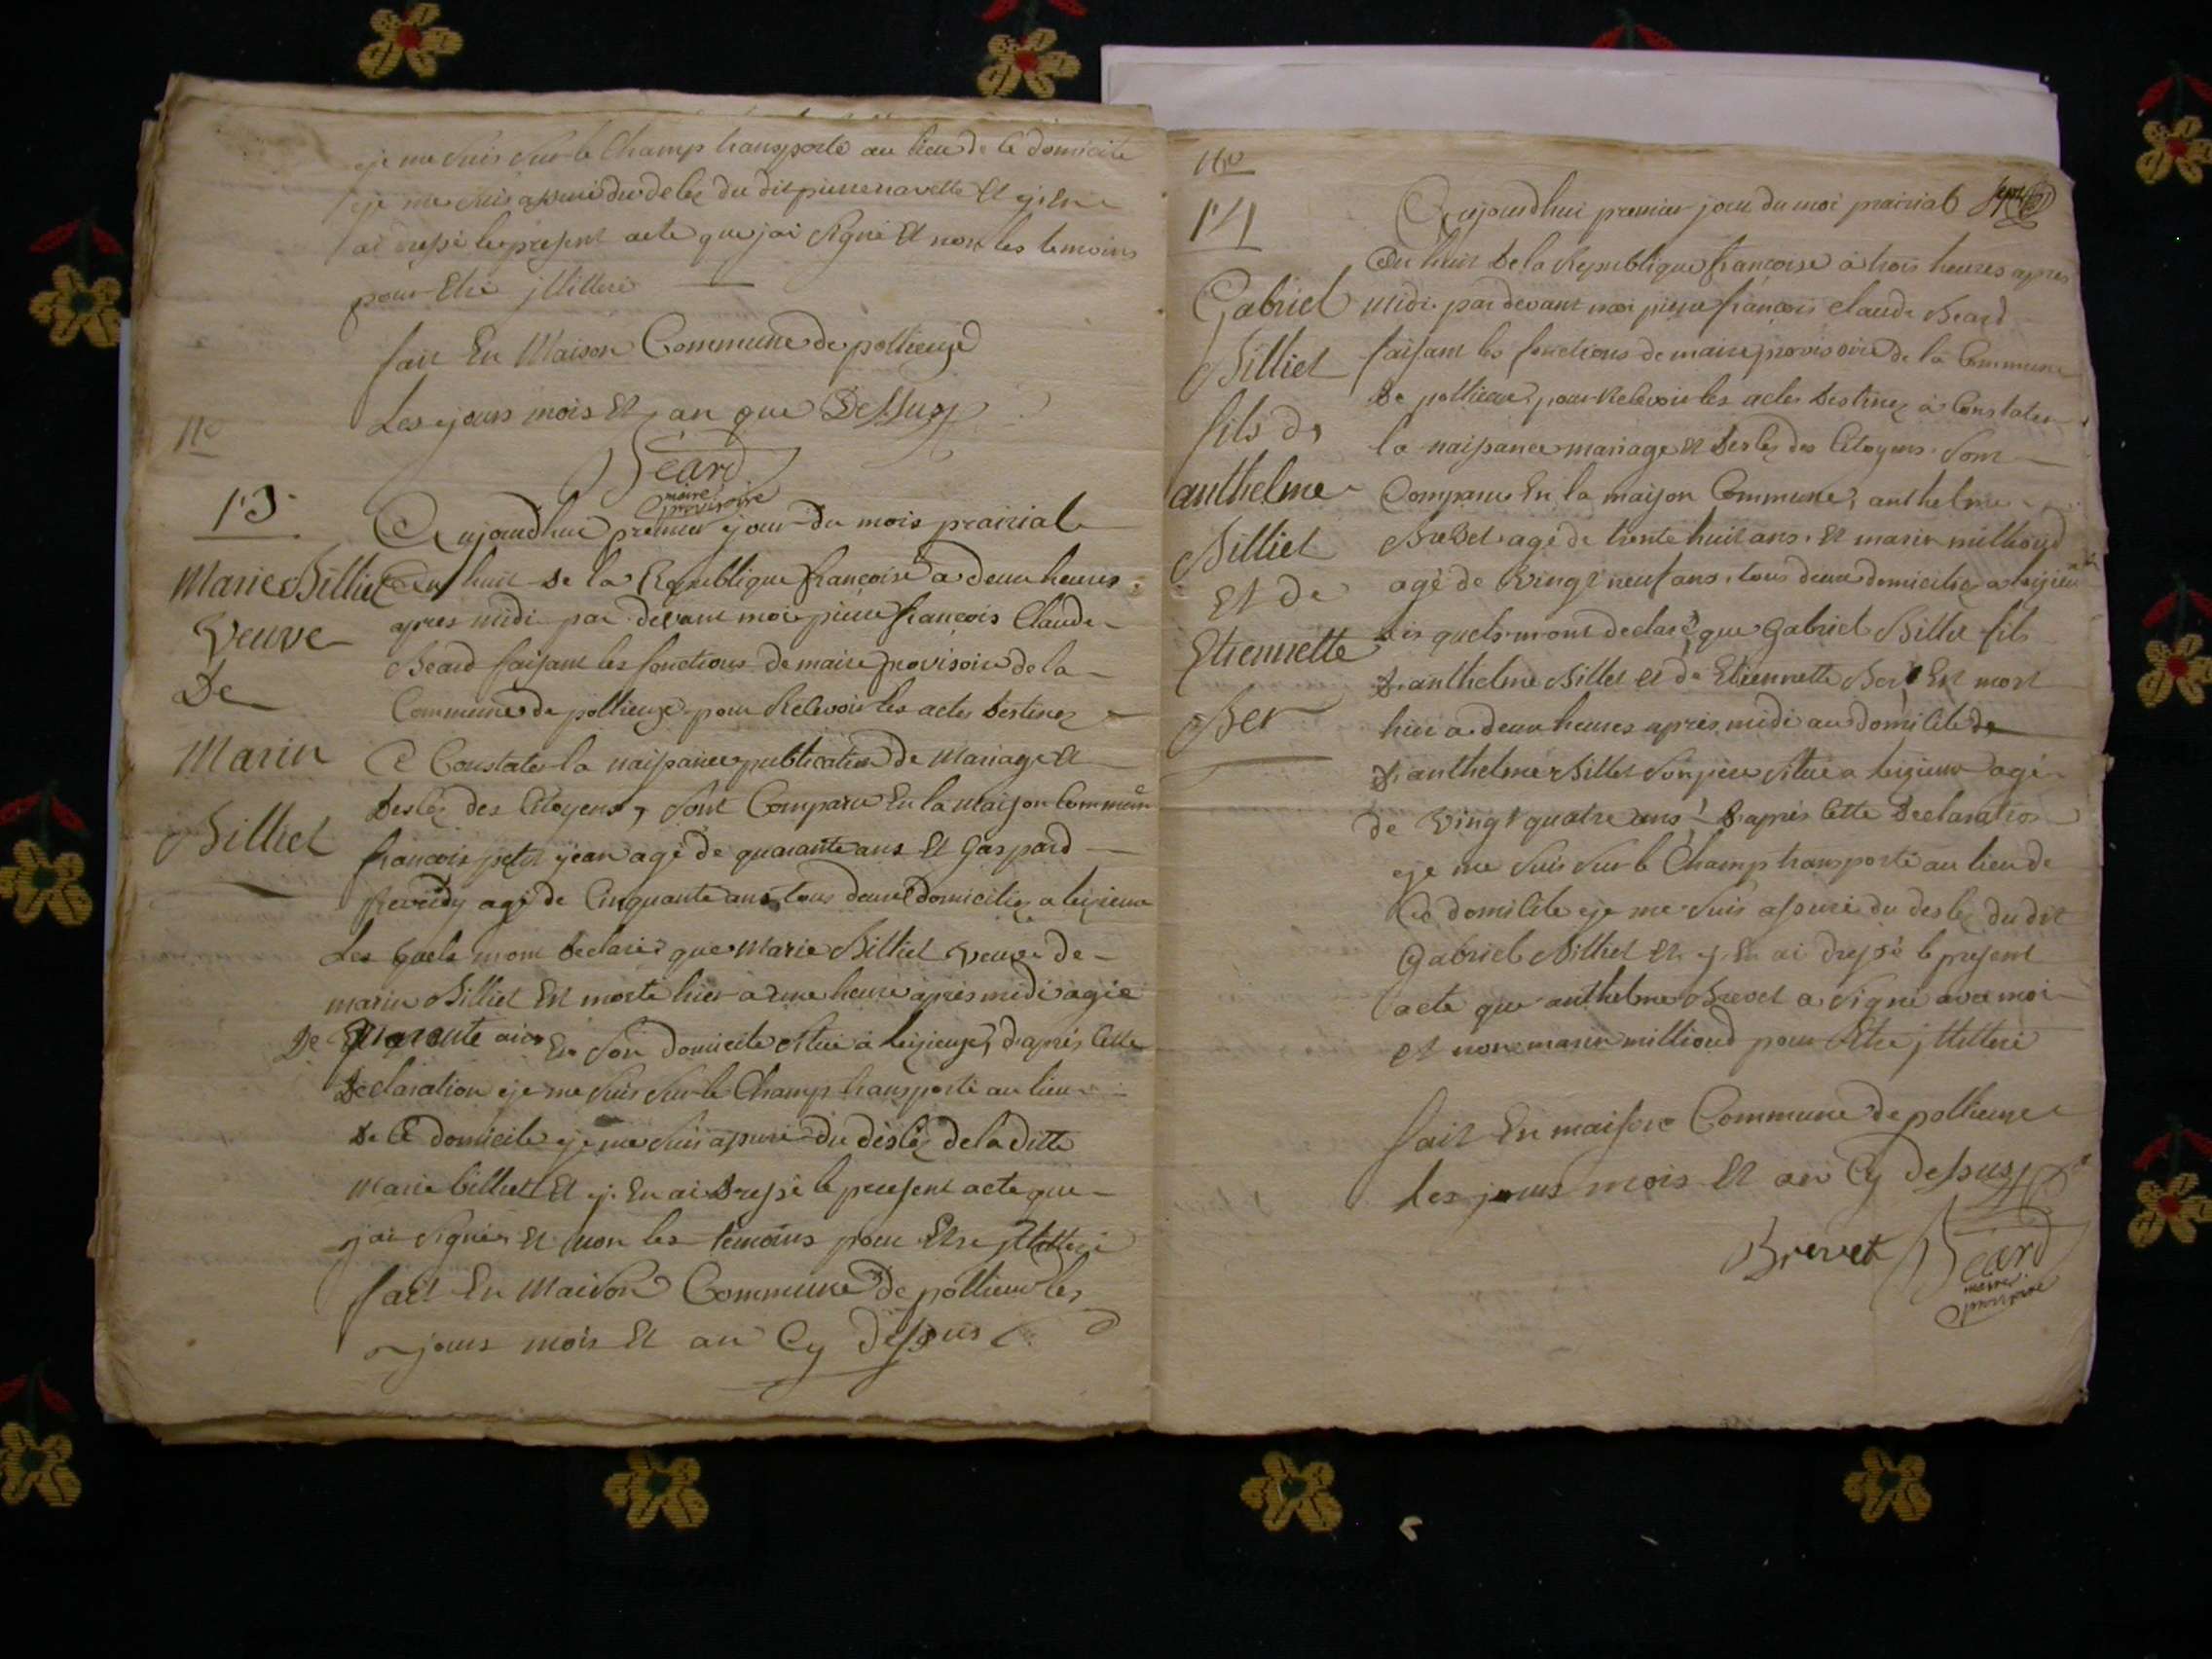 je me suis sur le Champ transporté au lieu de ce domicile
je me suis assuré du delez du dit pierre navette Et
ai dressé le present acte que jai Signé Et non les temoins
pour Etre jllitteré
fait En Maison Commune de pollieuge
Les jours mois Et an que Dessus
Beard
maire
provisoire
No
13
Marie Billiet
Veuve
De
Marin
Billiet
Aujourdhui premier jour du mois prairial
an huit de la Republique françoise a deux heures
apres midi par devant moi pierre françois Claude
Beard faisant les fonctions de maire provisoire de la
Commune de pollieuge pour Recevoir les actes destinez
a Constater la naissance publication de Mariage et
deslez des Citoyens, sont Comparu En la maison Commune
françois petit jean agé de quarante ans Et Gaspard
Reveidy agé de Cinquante ans tous deux domiciliez a leizieux
Les quels mont declaré que Marie Billiet veuve de
marin Billiet Est morte hier a une heure apres midi agée
De Quarante ans En Son domicile situé a leizieux, d'aprés cette
declaration je me suis sur le Champ transporté au lieu
de ce domicile je me suis assuré du deslez de la ditte
Marie billiet Et j'En ai dressé le present acte que
jai Signé Et non les temoins pour Etre jllitteré
fait En Maison Commune de pollieu les
jours mois Et an Cy dessus
No
14
Gabriel
Billiet
fils de
anthelme
Billiet
Et de
Etiennette
Ber
Aujourdhui premier jour du moi prairial
an huit de la Republique francoise à trois heures apres
midi par devant moi pierre françois Claude Beard
faisant les fonctions de maire provisoire de la Commune
de pollieux pour Recevoir les actes destinez à Constater
la naissance mariage Et deslez des Citoyens. sont
Comparus En la maison Commune, anthelme
Brevet agé de trente huit ans. Et marin milliond
agé de Vingt neuf ans. tous deux domiciliez a leizieu
les quels mont declaré que Gabriel Billet fils
d'anthelme Billet et de Etiennette Ber Est mort
hier a deux heures apres midi au domicile de
d'anthelme Billet Son pere situé a leizieux agé
de Vingt quatre ans. D'aprés cette declaration
je me suis sur le Champ transporté au lieu de
ce domicile je me suis assuré du deslez du dit
Gabriel Billiet Et j'En ai dressé le present
acte que anthelme Brevet a Signé avec moi
et non marin milliond pour Etre jllitteré
fait En maison Commune de pollieuge
Les jours mois Et an Cy dessus
Brevet Beard
maire
provisoire